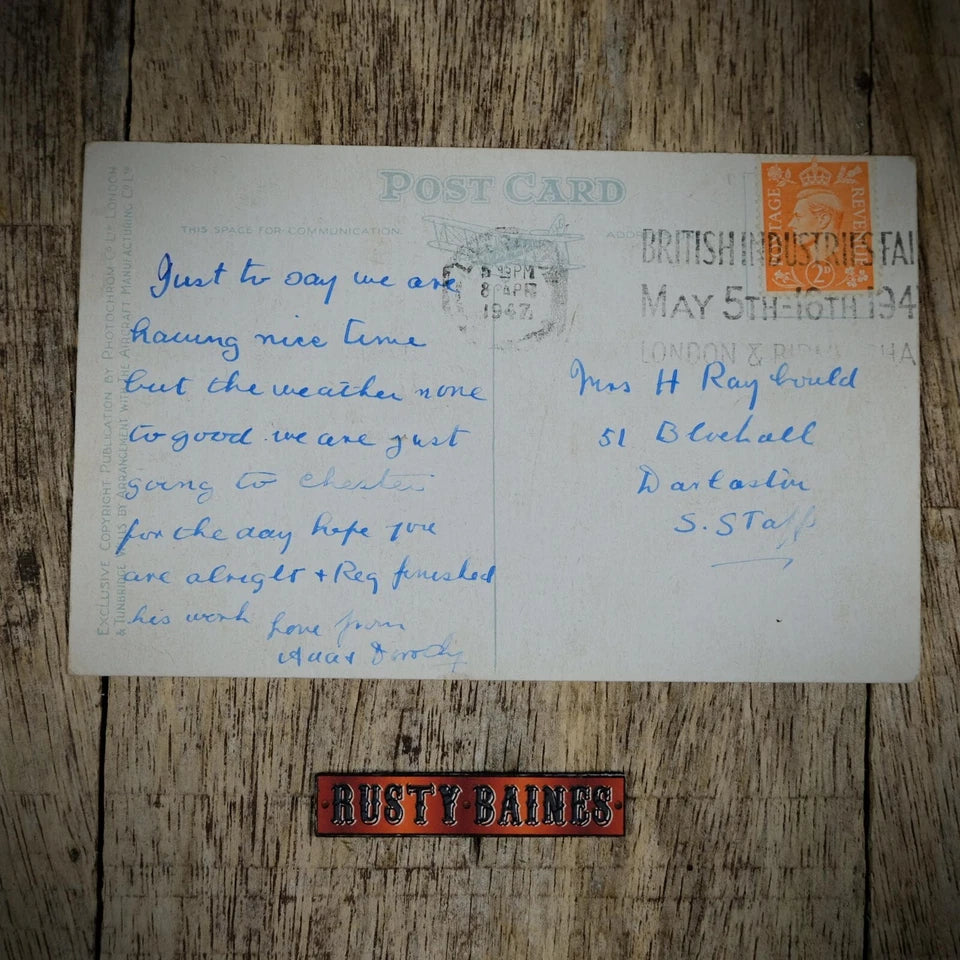 POST CARD
THIS SPACE FOR COMMUNICATION.
ADDR
EXCLUSIVE COPYRIGHT PUBLICATION BY PHOTOCHROM CO. LTD. LONDON
& TUNBRIDGE WELLS BY ARRANGEMENT WITH THE AIRCRAFT MANUFACTURING CO. LTD
Just to say we are
having nice time
but the weather none
to good we are just
going to Chester
for the day hope you
are alright + Reg finished
his work
Love from
Dorothy
PM
8 APR
1947
BRITISH INDUSTRIES FAI
MAY 5TH-16TH 194
LONDON & BIRM HA
POSTAGE REVENUE
2D
Mrs H Raybould
51 Bluehall
Darlaston
S. Staff
RUSTY·BAINES